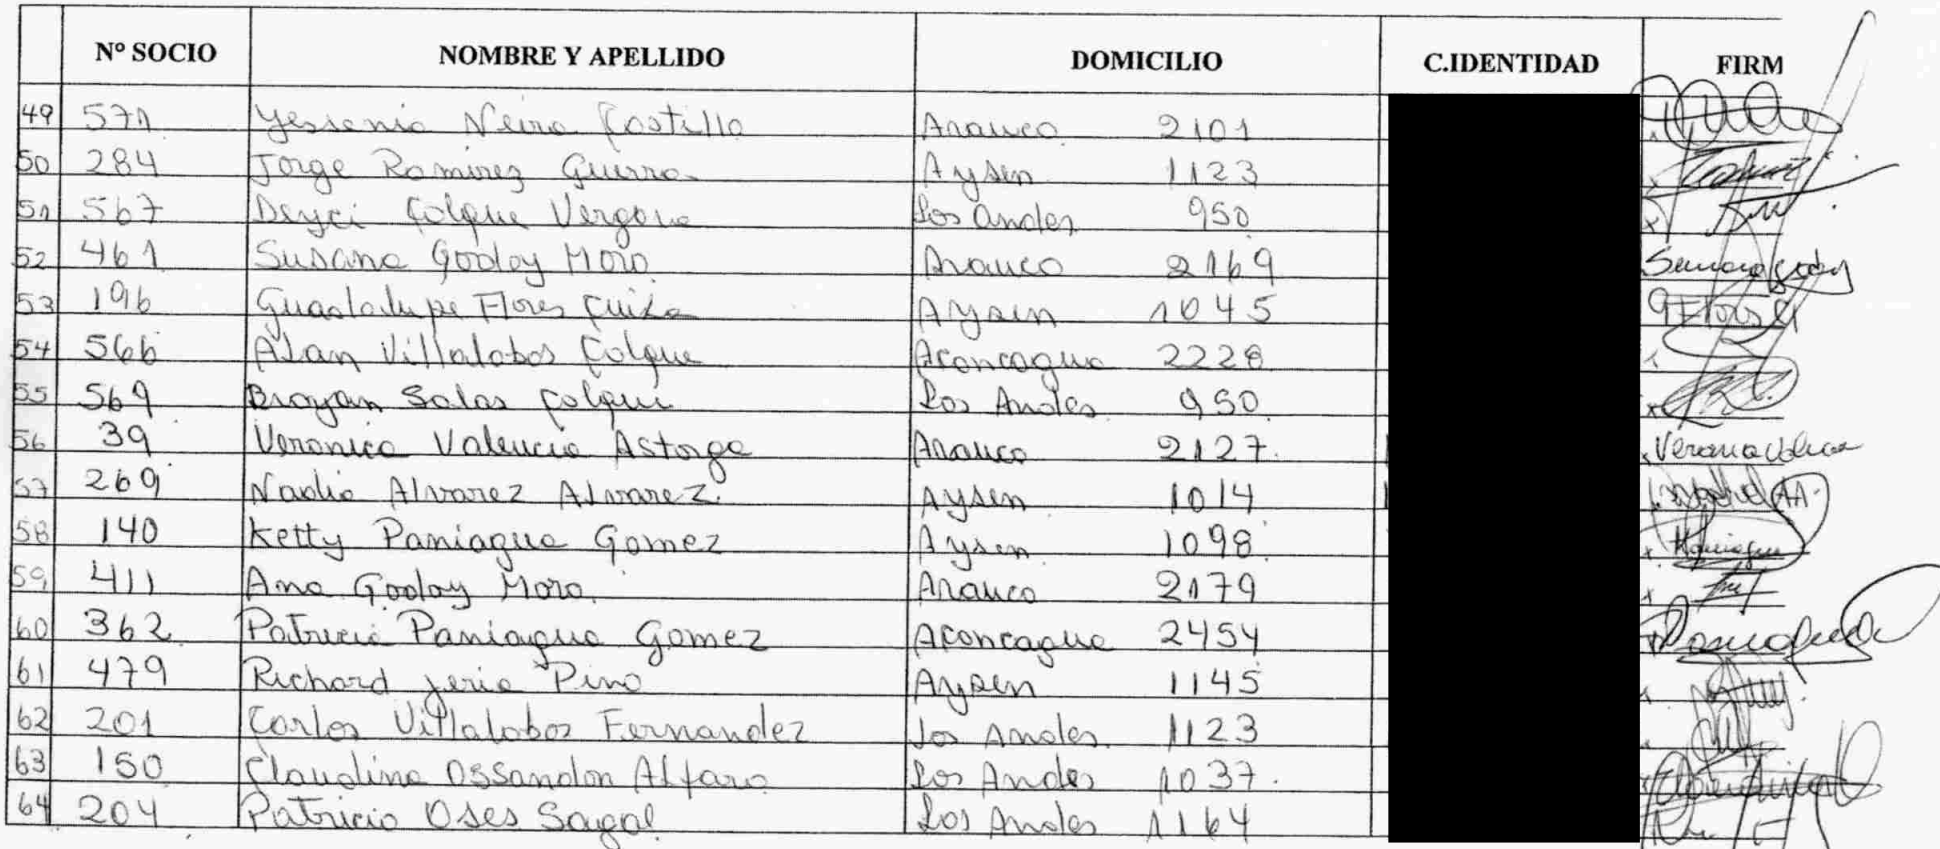 Nº SOCIO NOMBRE Y APELLIDO DOMICILIO C.IDENTIDAD FIRM
49 571 Yessenia Neira Castillo Arauco 2101
50 284 Jorge Ramirez Guerra Aysen 1123
51 567 Deyci Colque Vergara Los Andes 950
52 461 Susana Godoy Moro Arauco 2169 Susana Godoy
53 196 Guadalupe Flores Cuiza Aysen 1045 G Flores
54 566 Alan Villalobos Colque Aconcagua 2228
55 569 Brayan Salas Colqui Los Andes 950
56 39 Veronica Valencia Astorga Arauco 2127.
57 269 Nadia Alvarez Alvarez. Aysen 1014
58 140 Ketty Paniagua Gomez Aysen 1098
59 411 Ana Godoy Moro. Arauco 2179
60 362 Patricia Paniagua Gomez Aconcagua 2454
61 479 Richard Jeria Pino Aysen 1145
62 201 Carlos Villalobos Fernandez Los Andes. 1123
63 150 Claudina Ossandon Alfaro Los Andes 1037.
64 204 Patricio Oses Sagal Los Andes 1164